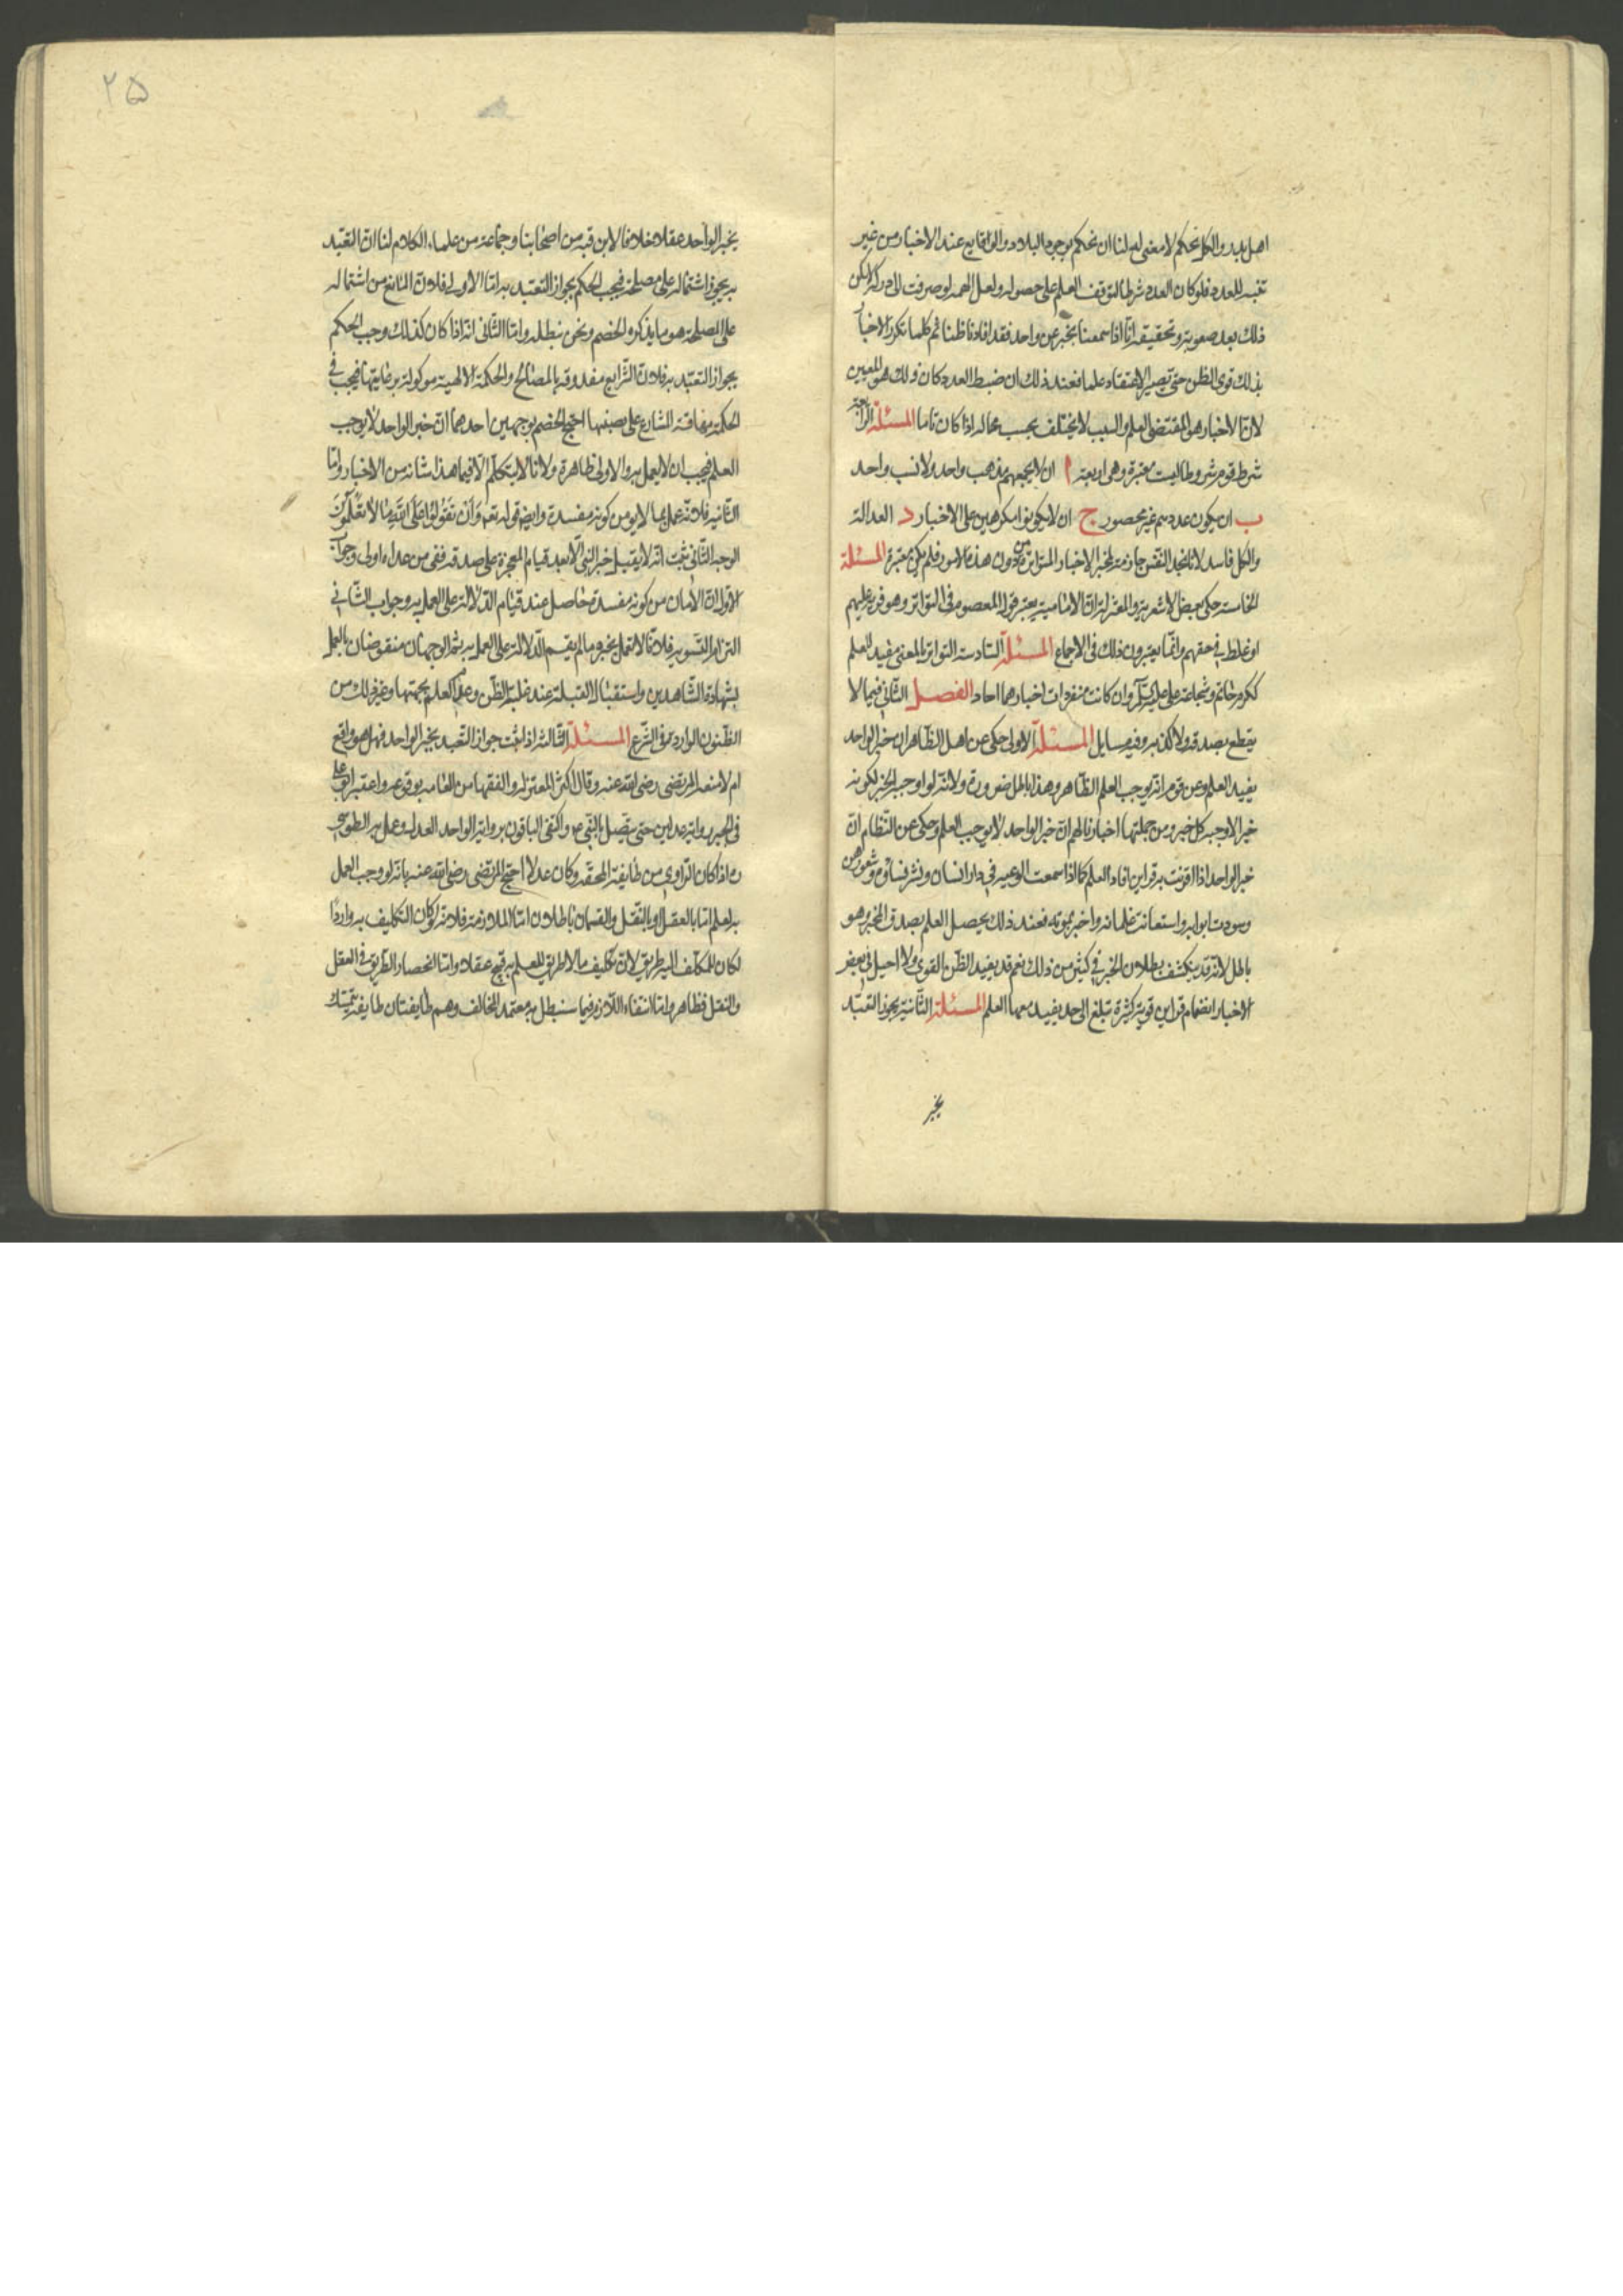 اهل بدر والكل تحكم لا معنى له لنا ان نحكم بوجود البلاد والوقايع عند الاخبار من غير
تنبه للعدد فلو كان العدد شرطا لتوقف العلم على حصوله ولعل الهمم لو صرفت الى دركه لكن
ذلك بعد صعوبته وتحقيقه انا اذا سمعنا بخبر عن واحد فقد افادنا ظنا ثم كلما تكرر الاخبار
بذلك قوى الظن حتى يصير الاعتقاد علما فعند ذلك ان ضبط العدد كان ذلك هو المعيّن
لان الاخبار هو المقتضى العلم والسبب لا يختلف بحسب محاله اذا كان تاما المسئلة الرابعة
شرط قوم شروطا ليست معتبرة وهى اربعة ا ان لا يجمعهم مذهب واحد ولا نسب واحد
ب ان يكون عددهم غير محصور ج ان لا يكونوا مكرهين على الاخبار د العدالة
والكل فاسد لانا نجد النفس جازمة بمخبر الاخبار المتواترة من دون هذه الامور فلم يكن معتبرة المسئلة
الخامسة حكى بعض الاشعرية والمعتزلة ان الامامية يعتبر قول المعصوم فى التواتر وهو فرية عليهم
او غلط فى حقهم وانما يعتبرون ذلك فى الاجماع المسئلة السادسة التواتر بالمعنى مفيد للعلم
ككرم حاتم وشجاعة على عليه السلام وان كانت منفردات اخبارهما احاد الفصل الثانى فيما لا
يقطع بصدقه ولا كذبه وفيه مسايل المسئلة الاولى حكى عن اهل الظاهر ان خبر الواحد
يفيد العلم وعن قوم انه يوجب العلم الظاهر وهذا باطل ضرورة ولانه لو اوجبه الخبر لكونه
خبرا لاوجبه كل خبر ومن جملتها اخبارنا لهم ان خبر الواحد لا يوجب العلم وحكى عن النظام ان
خبر الواحد اذا اقترنت به قراين افاد العلم كما اذا سمعت الوعية فى دار انسان ونشر نساؤه شعورهن
وسودت ابوابه واستعانت غلمانه واخبر بموته فعند ذلك يحصل العلم بصدق المخبر وهو
باطل لانه قد ينكشف بطلان الخبر فى كثير من ذلك نعم قد يفيد الظن القوى ولا احيل فى بعض
الاخبار انضمام قراين قوية كثيرة تبلغ الى حد يفيد معها العلم المسئلة الثانية يجوز التعبد
بخبر
٢٥
بخبر الواحد عقلا خلافا لابن قبه من اصحابنا وجماعة من علماء الكلام لنا ان التعبد
به يجوز اشتماله على مصلحة فيجب الحكم بجواز التعبد به اما الاولى فلان المانع من اشتماله
على المصلحة هو ما يذكره الخصم ونحن نبطله واما الثانى انه اذا كان كذلك وجب الحكم
بجواز التعبد به فلان الشرايع معذوقة بالمصالح والحكمة الالهية موكولة برعايتها فيجب فى
الحكمة نصب الشارع احتج الخصم بوجهين احدهما ان خبر الواحد لا يوجب
العلم فيجب ان لا يعمل به والاولى ظاهرة ولانا لا نتكلم الا فيما هذا شانه من الاخبار واما
الثانية فلانه عمل بما لا يؤمن كونه مفسدة وايضا قوله تعالى وَاَنْ تَقُولُوا عَلَى اللّهِ مَا لَا تَعْلَمُونَ
الوجه الثانى ثبت انه لا يقبل خبر النبى الا بعد قيام المعجزة على صدقه ففى من عداه اولى وجواب
الاول ان الامان من كونه مفسدة حاصل عند قيام الدلالة على العمل به وجواب الثانى
التزام التسوية فلانا لا نعمل بخبره ما لم يقم الدلالة على العمل به ثم الوجهان منقوضان بالعمل
بشهادة الشاهدين واستقبال القبلة عند غلبة الظن وعدم العلم بجهتها وغير ذلك من
الظنون الواردة فى الشرع المسئلة الثالثة اذا ثبت جواز التعبد بخبر الواحد فهل هو واقع
ام لا منعه المرتضى رضى الله عنه وقال اكثر المعتزلة والفقها من العامه بوقوعه واعتبر ابو على
فى الخبر رواية عدلين حتى يتصل بالنبى ص واكتفى الباقون برواية الواحد العدل وعمل به الطوسى
ره اذا كان الراوى من طايفة المحقة وكان عدلا احتج المرتضى رضى الله عنه بانه لو وجب العمل
به لعلم اما بالعقل او بالنقل والقسمان باطلان اما الملازمة فلانه لو كان التكليف به واردا
لكان للمكلف اليه طريق لان تكليف ما لا طريق للعلم به قبيح عقلا واما انحصار الطريق فى العقل
والنقل فظاهر واما انتفاء اللازم فيما سنبطل به معتمد المخالف وهم طايفتان طايفة يتمسك